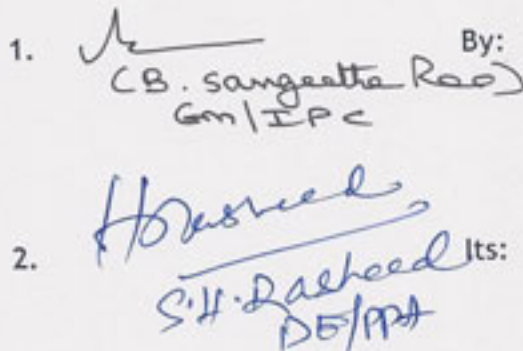 1. By:
(B. Sangeetha Rao)
Gm/IPC
2. HRasheed Its:
S.H. Rasheed
DE/PPA